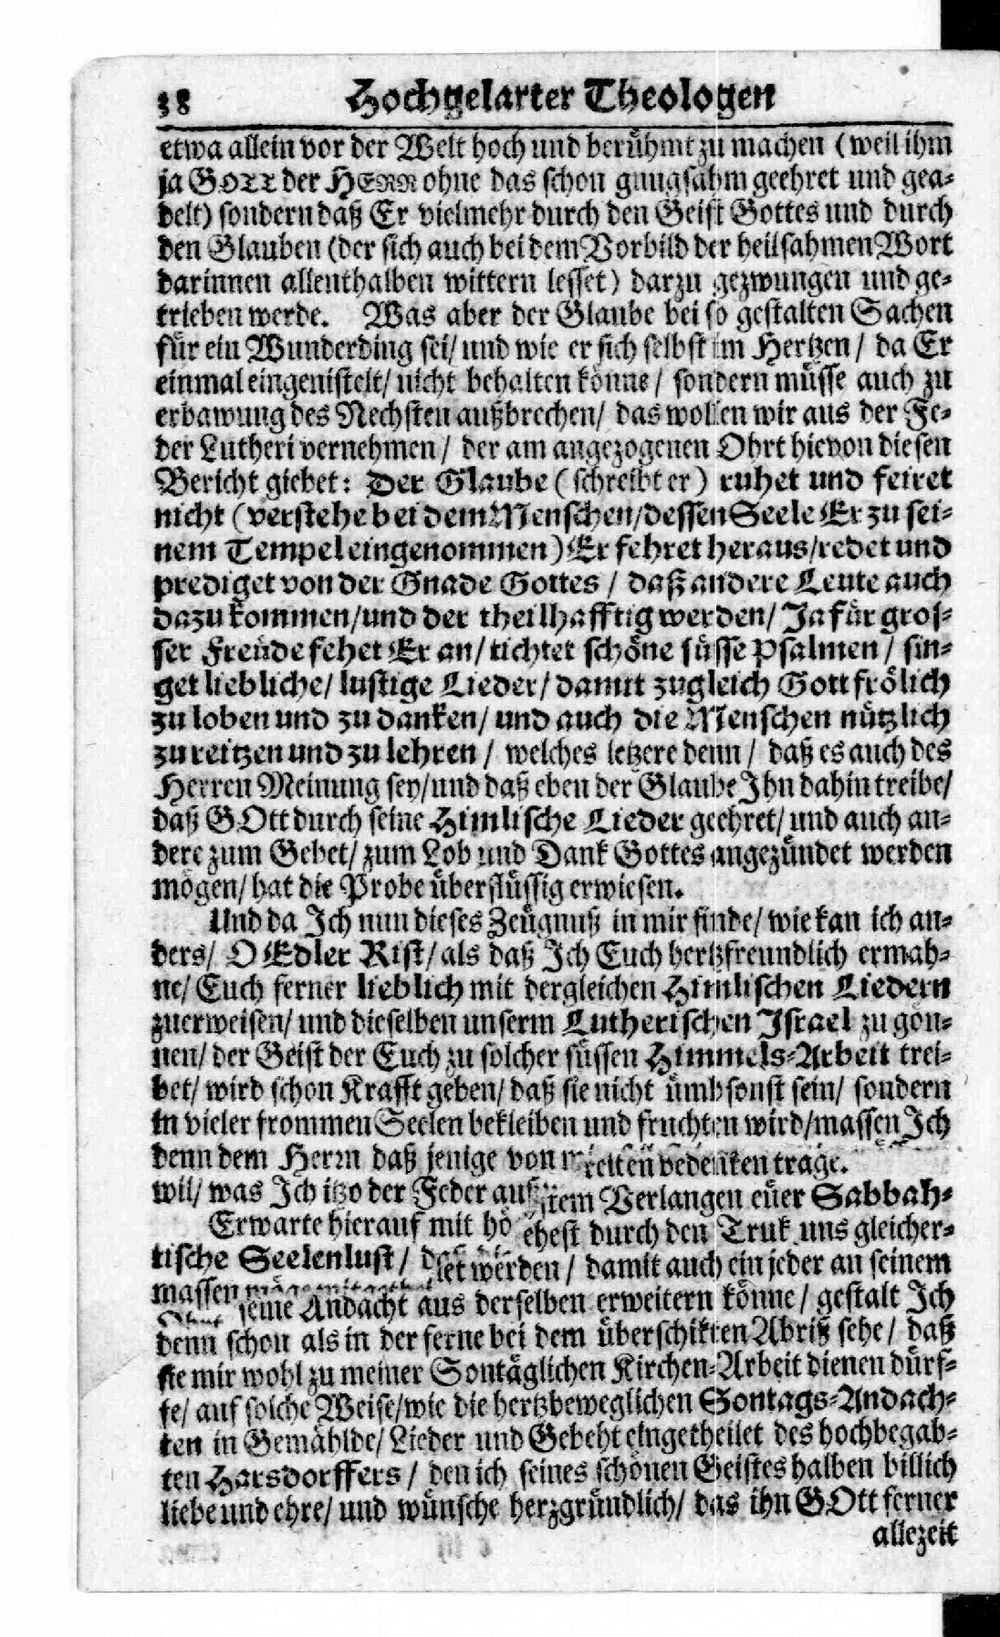 38 Hochgelarter Theologen
etwa allein vor der Welt hoch und berühmt zu machen (weil ihm
ja GOTT der HERR ohne das schon gnugsahm geehret und gea-
delt) sondern daß Er vielmehr durch den Geist Gottes und durch
den Glauben (der sich auch bei dem Vorbild der heilsahmen Wort
darinnen allenthalben wittern lesset) darzu gezwungen und ge-
trieben werde. Was aber der Glaube bei so gestalten Sachen
für ein Wunderding sei/ und wie er sich selbst im Hertzen/ da Er
einmal eingenistelt/ nicht behalten könne/ sondern müsse auch zu
erbawung des Nechsten außbrechen/ das wollen wir aus der Fe-
der Lutheri vernehmen/ der am angezogenen Ohrt hievon diesen
Bericht giebet: Der Glaube (schreibt er) ruhet und feiret
nicht (verstehe bei dem Menschen/ dessen Seele Er zu sei-
nem Tempel eingenommen) Er fehret heraus/ redet und
prediget von der Gnade Gottes/ daß andere Leute auch
dazu kommen/ und der theilhafftig werden/ Ja für gros-
ser Freude fehet Er an/ tichtet schöne süsse Psalmen/ sin-
get liebliche/ lustige Lieder/ damit zugleich Gott frölich
zu loben und zu danken/ und auch die Menschen nützlich
zu reitzen und zu lehren/ welches letzere denn/ daß es auch des
Herren Meinung sey/ und daß eben der Glaube Ihn dahin treibe/
daß GOtt durch seine Himlische Lieder geehret/ und auch an-
dere zum Gebet/ zum Lob und Dank Gottes angezündet werden
mögen/ hat die Probe überflüssig erwiesen.
Und da Ich nun dieses Zeügnuß in mir finde/ wie kan ich an-
ders/ O Edler Rist/ als daß Ich Euch hertzfreundlich ermah-
ne/ Euch ferner lieblich mit dergleichen Himlischen Liedern
zuerweisen/ und dieselben unserm Lutherischen Israel zu gön-
nen/ der Geist der Euch zu solcher süssen Himmels-Arbeit trei-
bet/ wird schon Krafft geben/ daß sie nicht ümbsonst sein/ sondern
in vieler frommen Seelen bekleiben und fruchten wird/ massen Ich
denn dem Herrn daß jenige von reiffen bedenken trage.
wil/ was Ich itzo der Feder auß stem Verlangen eüer Sabbah-
Erwarte hierauf mit hö ehest durch den Truk uns gleicher-
tische Seelenlust/ set werden/ damit auch ein jeder an seinem
massen seine Andacht aus derselben erweitern könne/ gestalt Ich
denn schon als in der ferne bei dem überschikten Abriß sehe/ daß
sie mir wohl zu meiner Sontäglichen Kirchen-Arbeit dienen dürf-
fe/ auf solche Weise/ wie die hertzbeweglichen Sontags-Andach-
ten in Gemählde/ Lieder und Gebeht eingetheilet des hochbegab-
ten Harsdorffers/ den ich seines schönen Geistes halben billich
liebe und ehre/ und wünsche herzgründlich/ das ihn GOtt ferner
allezeit